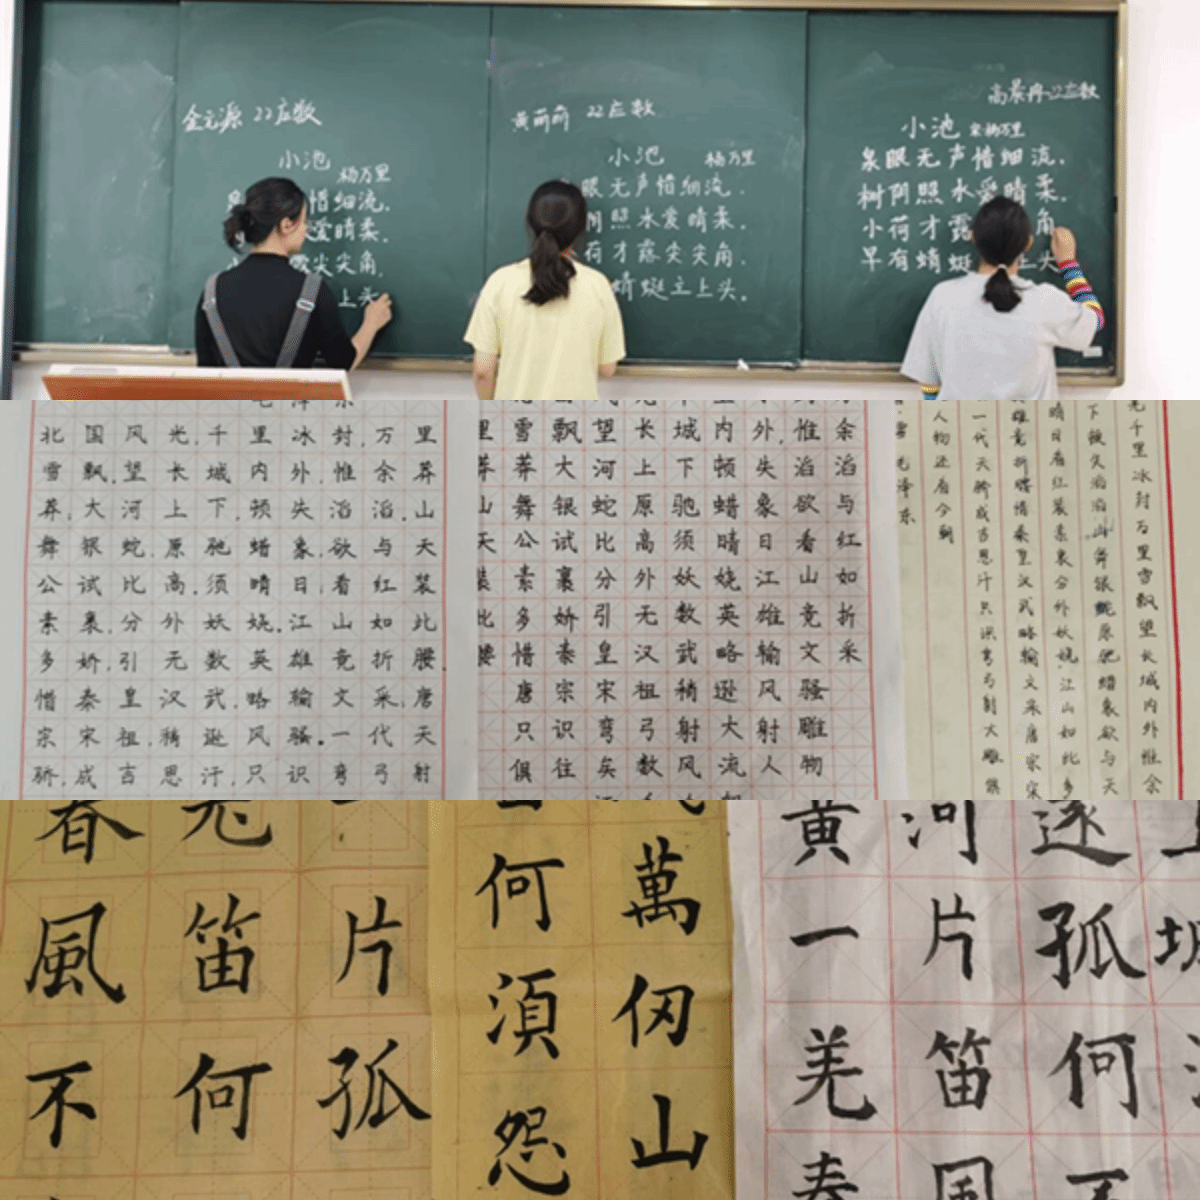 金元源 22应数
小池
杨万里
惜细流.
爱晴柔.
露尖尖角.
上头
黄萌萌 22应数
小池 杨万里
眼无声惜细流.
阴照水爱晴柔.
荷才露尖尖角.
蜻蜓立上头.
22应数
小池 宋杨万里
泉眼无声惜细流.
树阴照水爱晴柔.
小荷才露角
早有蜻蜓上头
北国风光,千里冰封,万里
雪飘,望长城内外,惟余莽
莽,大河上下,顿失滔滔,山
舞银蛇,原驰蜡象,欲与天
公试比高,须晴日,看红装
素裹,分外妖娆,江山如此
多娇,引无数英雄竞折腰.
惜秦皇汉武,略输文采,唐
宗宋祖,稍逊风骚.一代天
骄,成吉思汗,只识弯弓射
里雪飘望长城内外,惟余
莽莽大河上下顿失滔滔
山舞银蛇原驰蜡象欲与
天公试比高须晴日看红
装素裹分外妖娆江山如
比多娇引无数英雄竞折
腰惜秦皇汉武略输文采
唐宗宋祖稍逊风骚
只识弯弓射大射雕
俱往矣数风流人物
光千里冰封万里雪飘望长城内外惟余
下顿失滔滔山舞银蛇原驰蜡象欲与天
晴日看红装素裹分外妖娆江山如此多
雄竞折腰惜秦皇汉武略输文采唐宗宋
一代天骄成吉思汗只识弯弓射大雕俱
人物还看今朝
雪 毛泽东
片孤
笛何
春風不
萬仞山
何須怨
城
逐孤何
河片笛風
黄一羌春